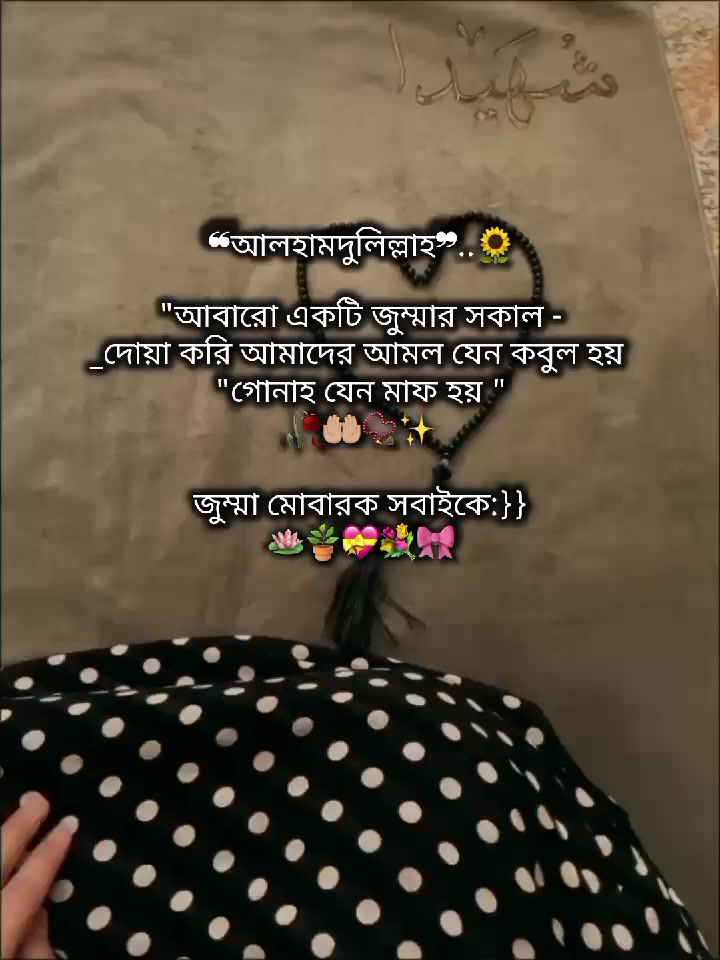 شُهَيْدا
❝আলহামদুলিল্লাহ❞..🌻
"আবারো একটি জুম্মার সকাল -
_দোয়া করি আমাদের আমল যেন কবুল হয়
"গোনাহ যেন মাফ হয় "
🥀🤲🏼📿✨
জুম্মা মোবারক সবাইকে:}}
🪷🪴💝💐🎀